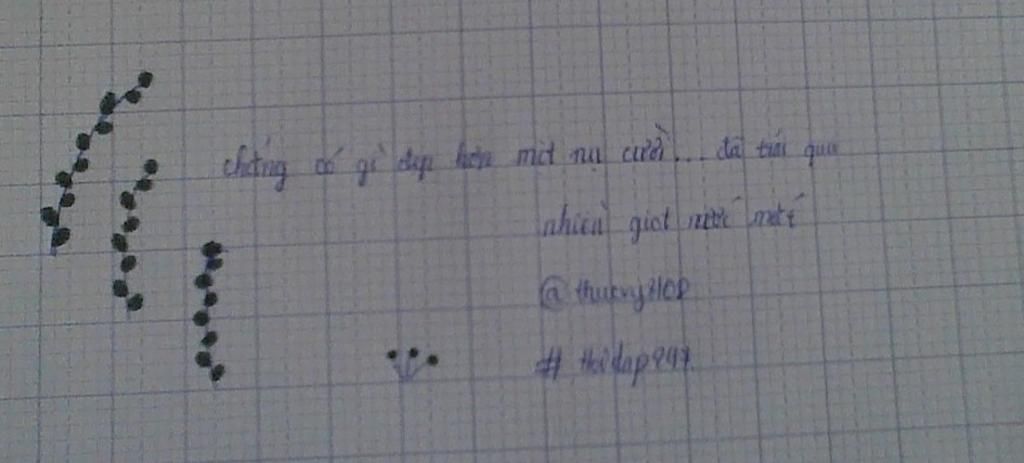 chẳng có gì đẹp hơn một nụ cười... đã trải qua
nhiều giọt nước mắt
@thuevy2108
# Hỏidap247.